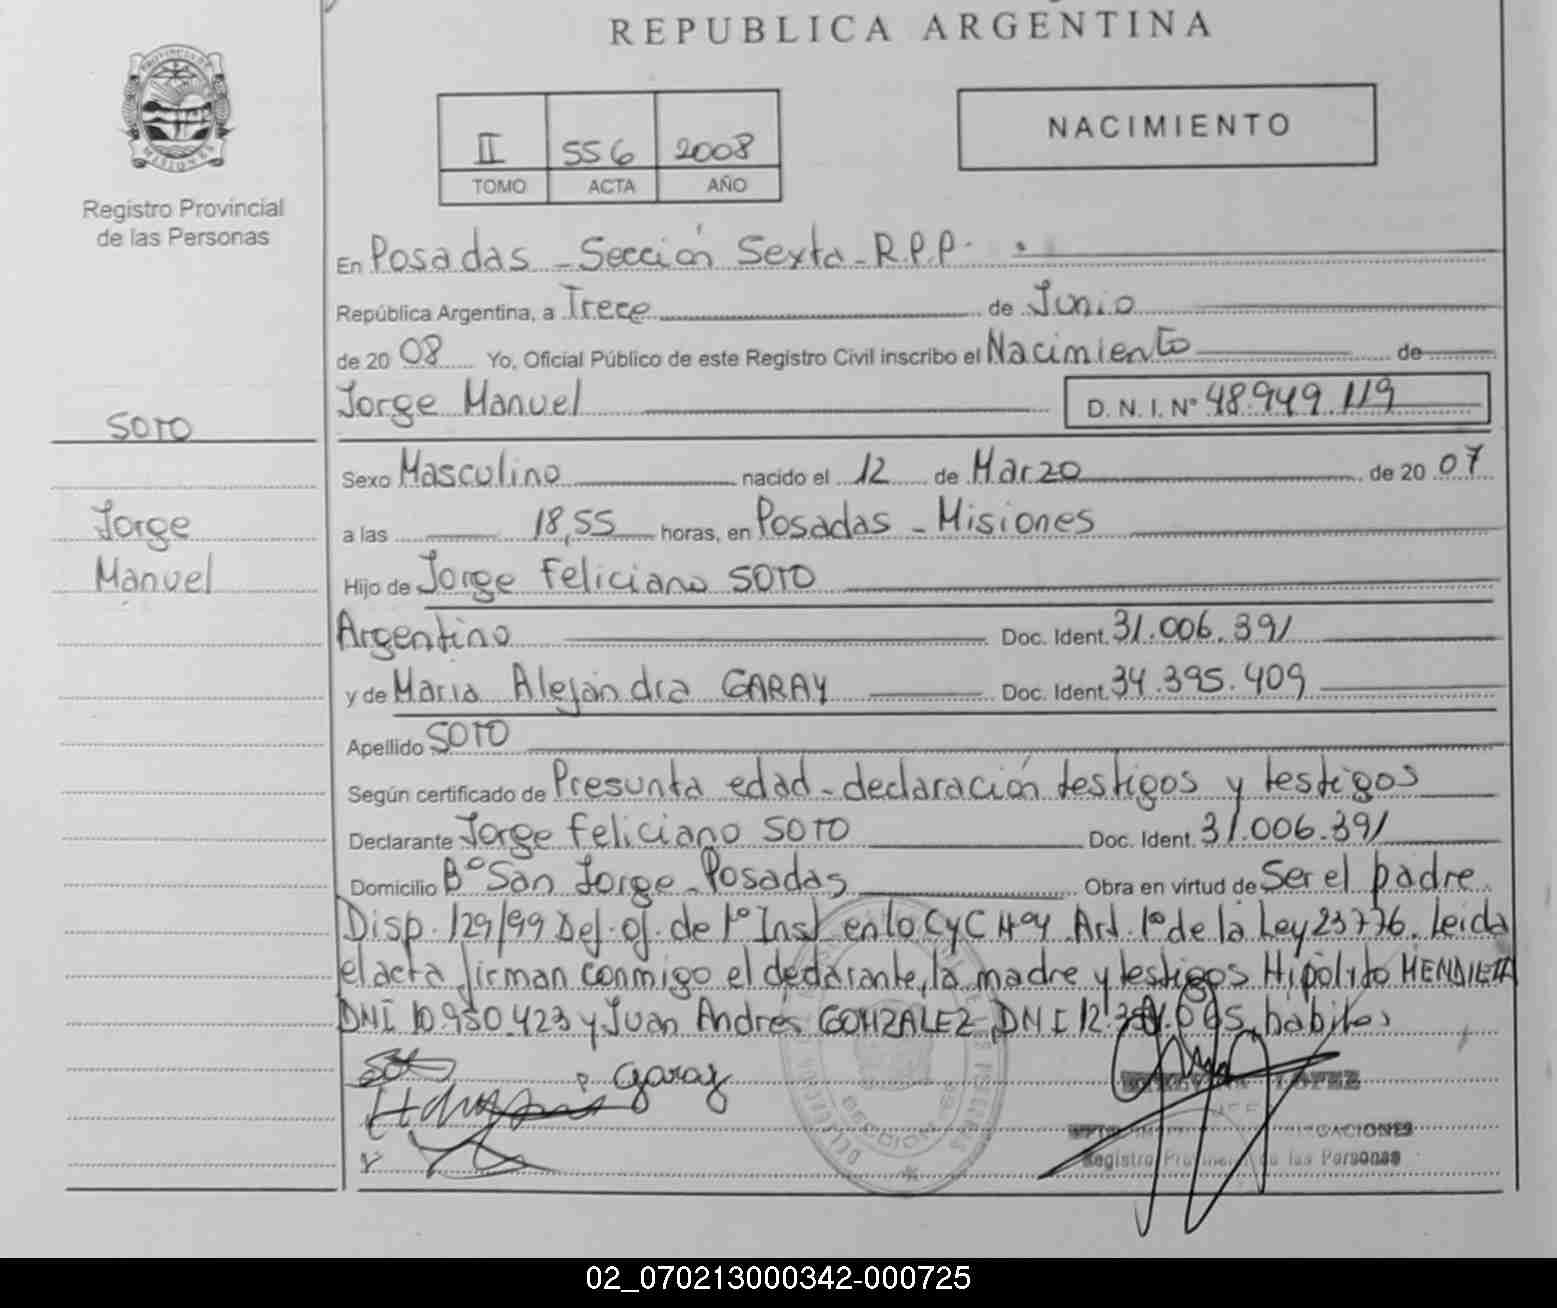 REPUBLICA ARGENTINA
PROVINCIA DE
MISIONES
Registro Provincial
de las Personas
II 556 2008
TOMO ACTA AÑO
NACIMIENTO
En Posadas - Sección Sexta - R.P.P.
República Argentina, a Trece de Junio
de 2008 Yo, Oficial Público de este Registro Civil inscribo el Nacimiento de
Jorge Manuel D. N. I. Nº 48.949.119
SOTO
Sexo Masculino nacido el 12 de Marzo de 2007
Jorge
a las 18,55 horas, en Posadas - Misiones
Manuel
Hijo de Jorge Feliciano SOTO
Argentino Doc. Ident. 31.006.391
y de Maria Alejandra GARAY Doc. Ident. 34.395.409
Apellido SOTO
Según certificado de Presunta edad - declaración testigos y testigos
Declarante Jorge Feliciano SOTO Doc. Ident. 31.006.391
Domicilio Bº San Jorge - Posadas Obra en virtud de Ser el padre
Disp. 129/99 Def. of. de 1º Inst en lo CyC Nº4 Art. 1º de la Ley 23776. Leida
el acta firman conmigo el declarante, la madre y testigos Hipolito MENDIETA
DNI 10.950.423 y Juan Andrés GONZALEZ DNI habiles
Garay
LOPEZ
Registro Provincial de las Personas
02_070213000342-000725